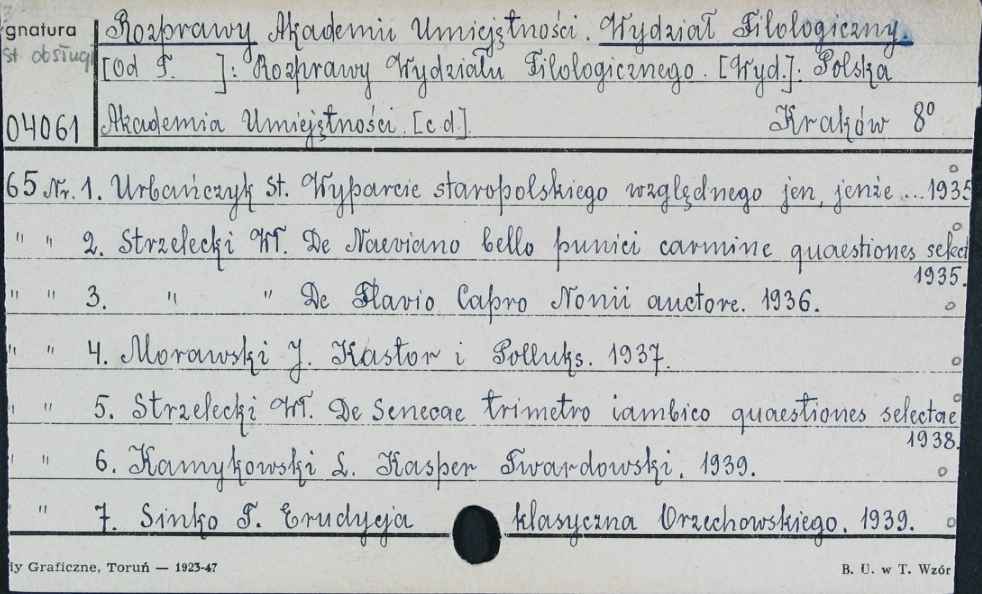 gnatura Rozprawy Akademii Umiejętności. Wydział Filologiczny.
st obsługi [Od T. ]: Rozprawy Wydziału Filologicznego. [Wyd.]: Polska
04061 Akademia Umiejętności. [c d]. Kraków 8º
65 Nr. 1. Urbańczyk St. Wyparcie staropolskiego względnego jen, jenże ... 1935
" " 2. Strzelecki Wł. De Naeviano belli punici carmine quaestiones select
1935.
" " 3. " " De Flavio Capro Nonii auctore. 1936.
" " 4. Morawski J. Kastor i Polluks. 1937.
" " 5. Strzelecki Wł. De Senecae trimetro iambico quaestiones selectae
1938.
" " 6. Kamykowski L. Kasper Twardowski. 1939.
" 7. Sinko T. Erudycja klasyczna Orzechowskiego. 1939.
iy Graficzne, Toruń — 1923-47 B. U. w T. Wzór